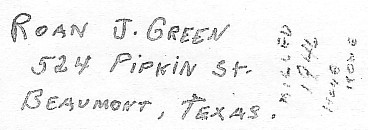 ROAN J. GREEN
524 PIPKIN St.
BEAUMONT, TEXAS.
KILLED